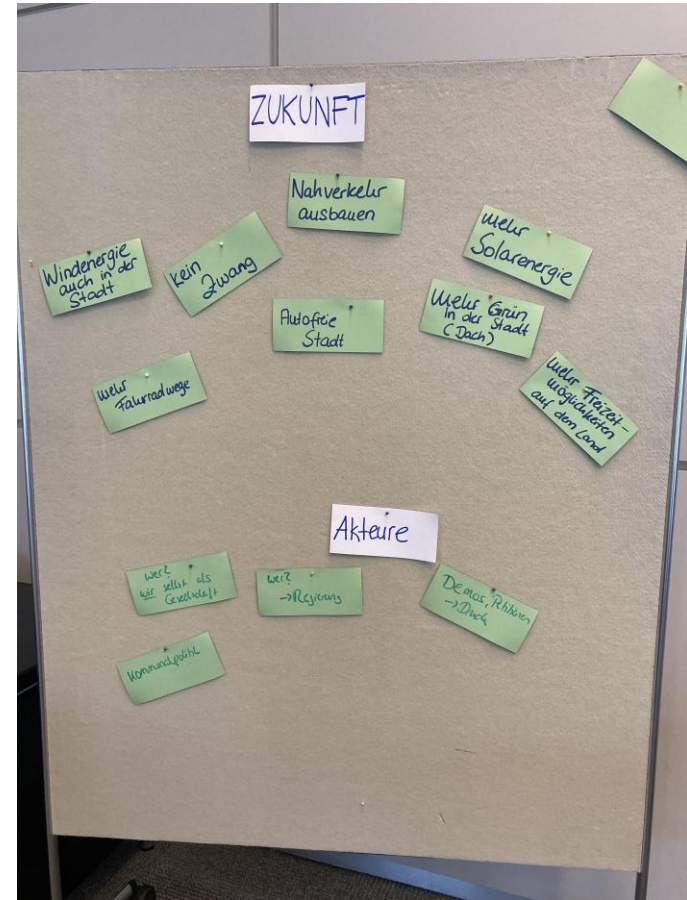 ZUKUNFT
Nahverkehr
ausbauen
Windenergie
auch in der
Stadt
kein
Zwang
mehr
Solarenergie
Autofreie
Stadt
Mehr Grün
in der Stadt
(Dach)
mehr
Fahrradwege
Mehr Freizeit-
möglichkeiten
auf dem Land
Akteure
Wer?
wir selbst als
Gesellschaft
Wer?
→Regierung
Demos, Petitionen
→Druck
Kommunalpolitik